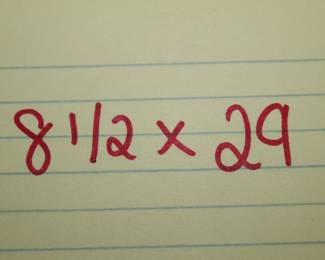 8 1/2 x 29